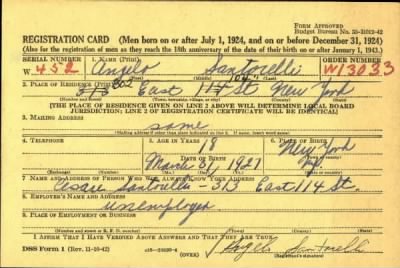 FORM APPROVED
Budget Bureau No. 33-R012-42
REGISTRATION CARD—(Men born on or after July 1, 1924, and on or before December 31, 1924)
(Also for the registration of men as they reach the 18th anniversary of the date of their birth on or after January 1, 1943.)
SERIAL NUMBER 1. NAME (Print) ORDER NUMBER
W 452 Angelo Santorelli W13033
(First) (Middle) (Last)
2. PLACE OF RESIDENCE (Print)
313 East 114 St New York
(Number and street) (Town, township, village, or city) (County) (State)
[THE PLACE OF RESIDENCE GIVEN ON LINE 2 ABOVE WILL DETERMINE LOCAL BOARD
JURISDICTION; LINE 2 OF REGISTRATION CERTIFICATE WILL BE IDENTICAL]
3. MAILING ADDRESS
same
[Mailing address if other than place indicated on line 2. If same, insert word same]
4. TELEPHONE 5. AGE IN YEARS 6. PLACE OF BIRTH
18 New York
DATE OF BIRTH
March 31, 1927
(Exchange) (Number) (Mo.) (Day) (Yr.) (State or country)
7. NAME AND ADDRESS OF PERSON WHO WILL ALWAYS KNOW YOUR ADDRESS
Santorelli - 313 East 114 St.
8. EMPLOYER'S NAME AND ADDRESS
unemployed
9. PLACE OF EMPLOYMENT OR BUSINESS
(Number and street or R. F. D. number) (Town) (County) (State)
I AFFIRM THAT I HAVE VERIFIED ABOVE ANSWERS AND THAT THEY ARE TRUE.
DSS Form 1 (Rev. 11-16-42) (OVER) Angelo Santorelli